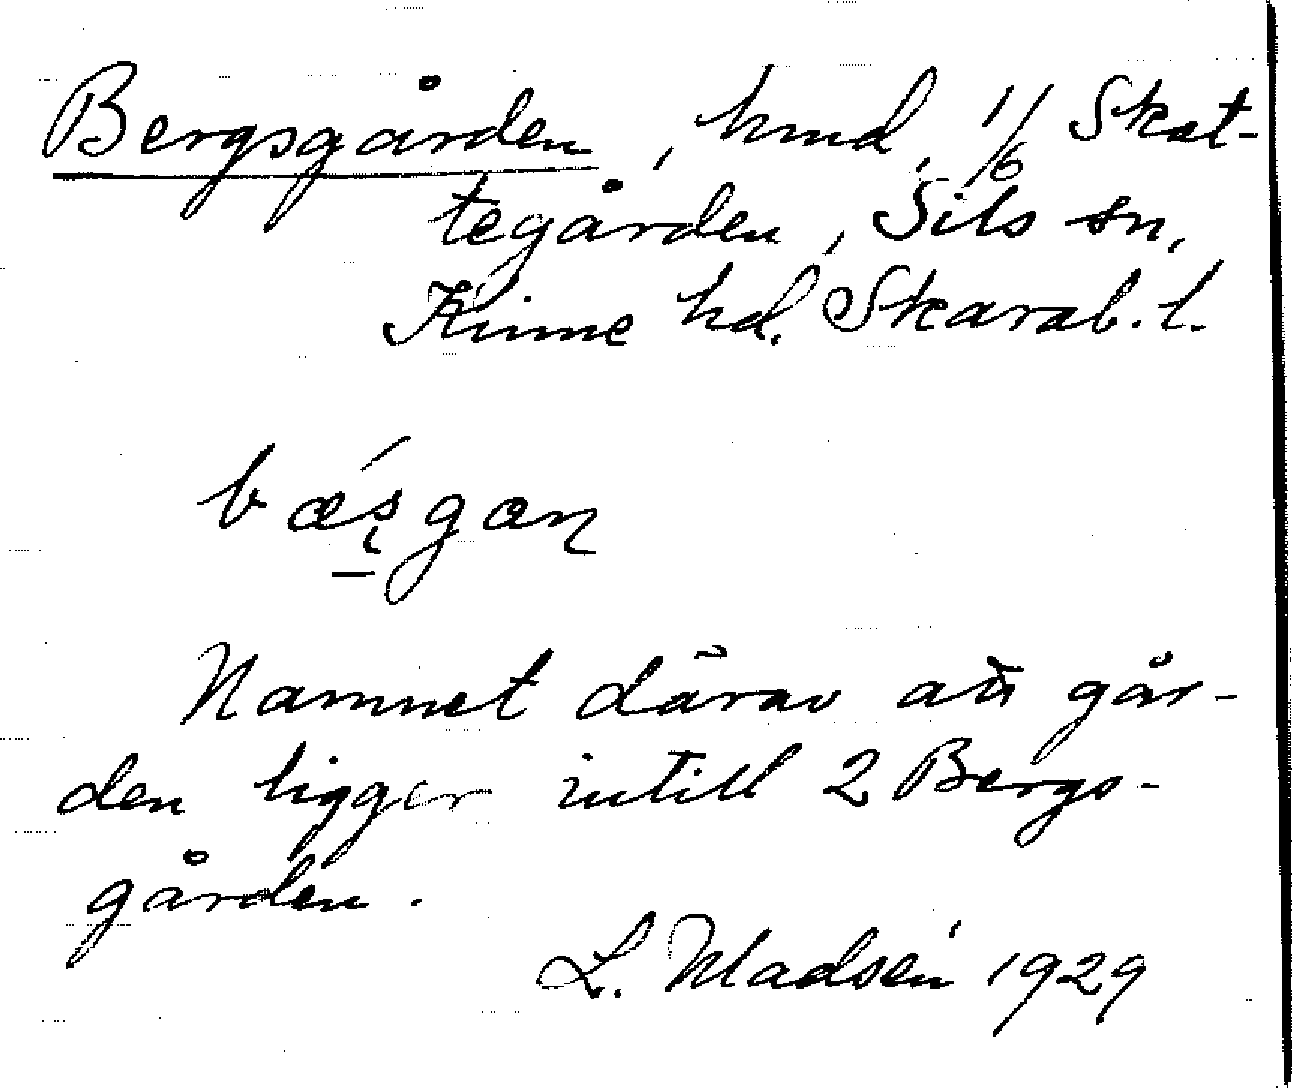 Bergsgården, hmd, 1/6 Skat-
tegården, Sils sn,
Kinne hd. Skarab. l.
bæ´s̨gaɳ
Namnet därav att går-
den ligger intill 2 Bergs-
gården.
L. Madsén 1929